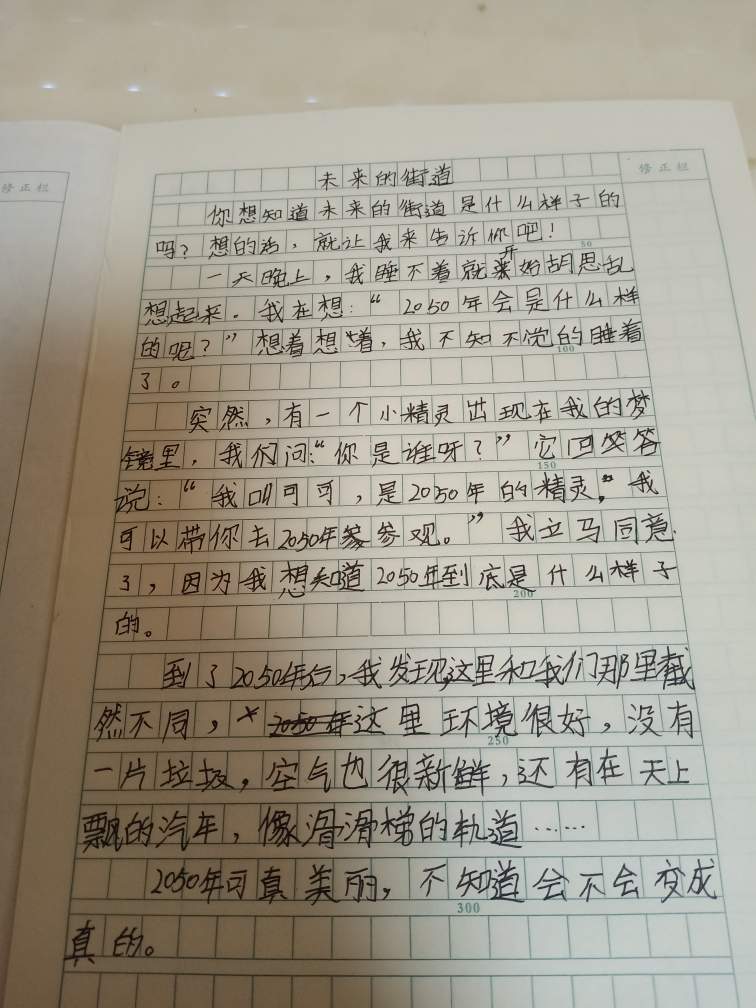 修正栏
修正栏
未来的街道
你想知道未来的街道是什么样子的
吗？想的话，就让我来告诉你吧！
50
一天晚上，我睡不着就开始胡思乱
想起来。我在想：“2050年会是什么样
的呢？”想着想着，我不知不觉的睡着
100
了。
突然，有一个小精灵出现在我的梦
镜里，我们问：“你是谁呀？”它回答
150
说：“我叫可可，是2050年的精灵。”我
可以带你去2050年参观。”我立马同意
了，因为我想知道2050年到底是什么样子
200
的。
到了2050年后，我发现这里和我们那里截
然不同，这里环境很好，没有
250
一片垃圾，空气也很新鲜，还有在天上
飘的汽车，像滑滑梯的轨道……
2050年可真美丽，不知道会不会变成
300
真的。